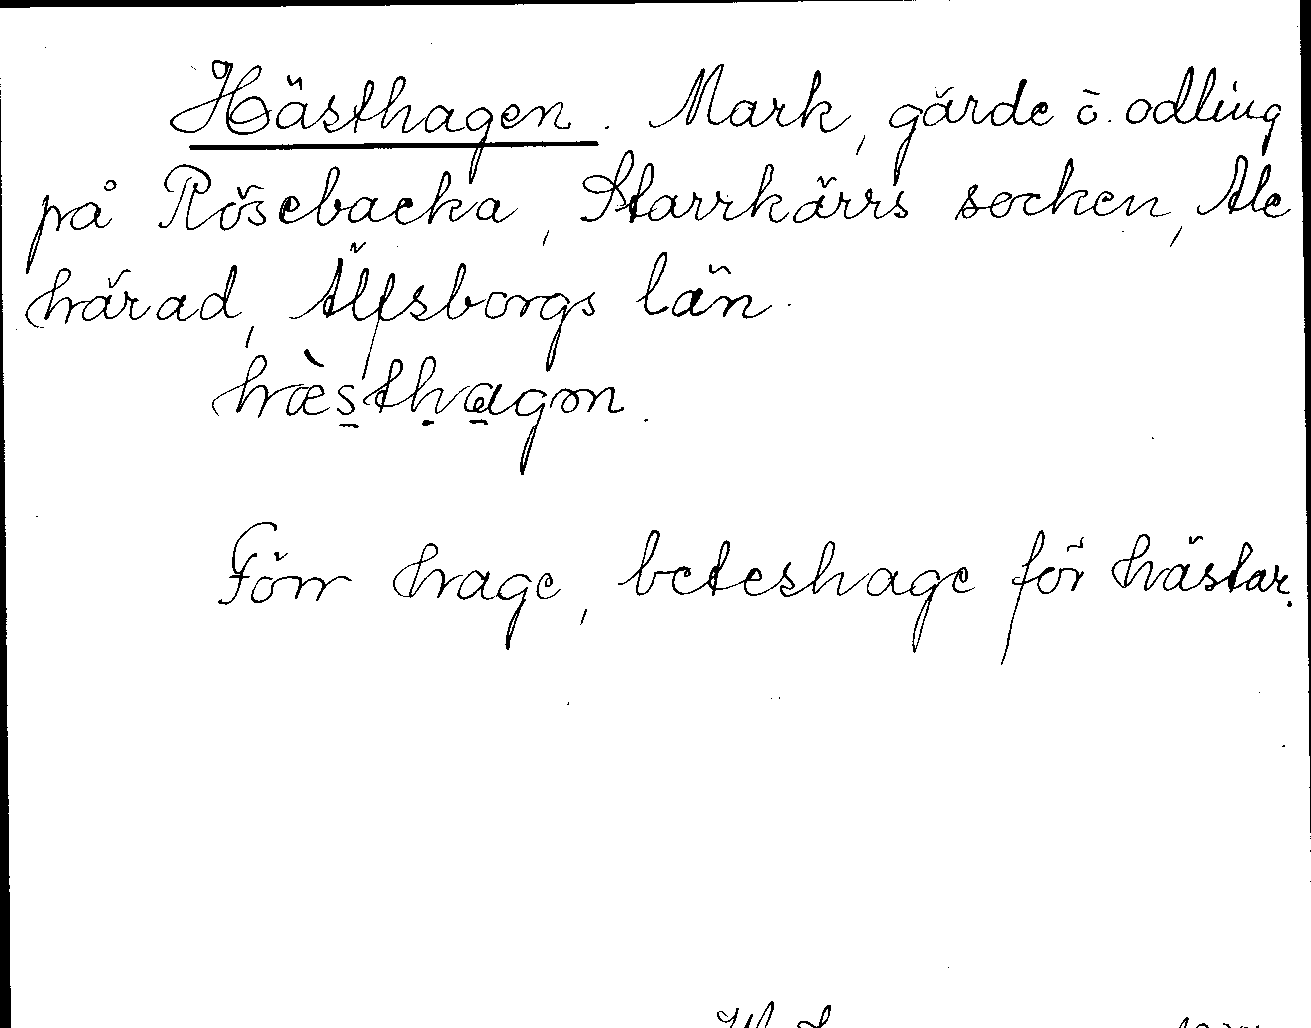 Hästhagen. Mark, gärde o. odling
på Rösebacka, Starrkärrs socken, Ale
härad, Älfsborgs län.
hæ̀sthagən.
Förr hage, beteshage för hästar.